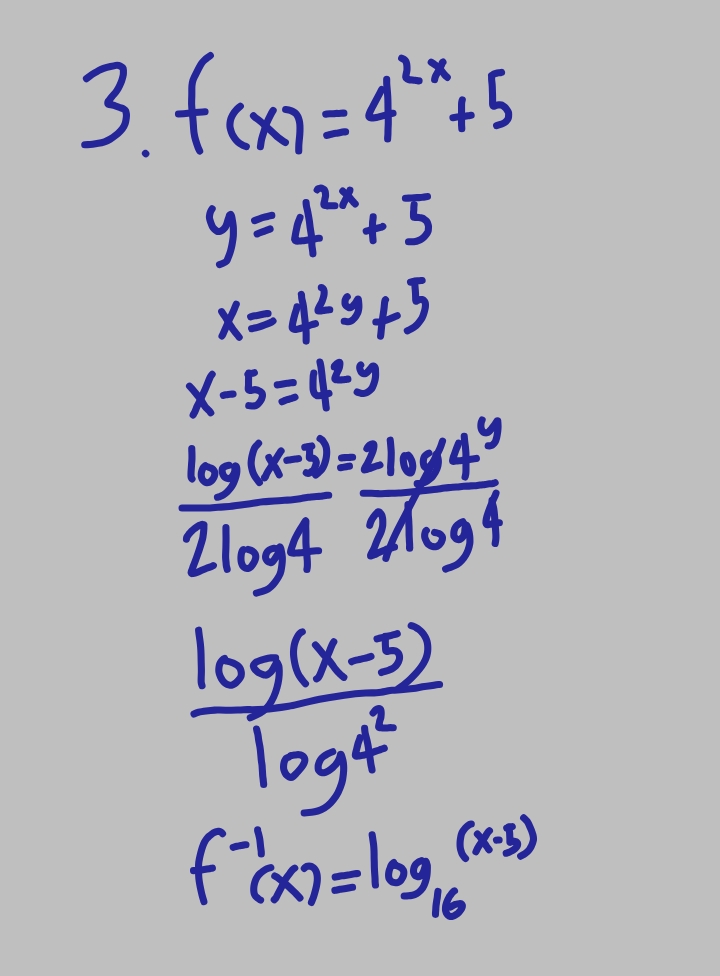 3. f(x) = 4^{2x} + 5
y = 4^{2x} + 5
x = 4^{2y} + 5
x - 5 = 4^{2y}
\frac{log(x-5)}{2log4} = \frac{2log4^y}{2log4}
\frac{log(x-5)}{log4^2}
f^{-1}(x) = log_{16}^{(x-5)}